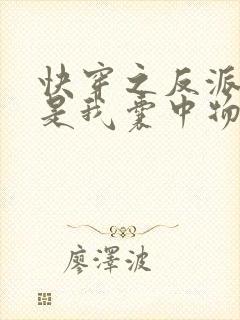 快穿之反派
是我囊中物
廖澤波